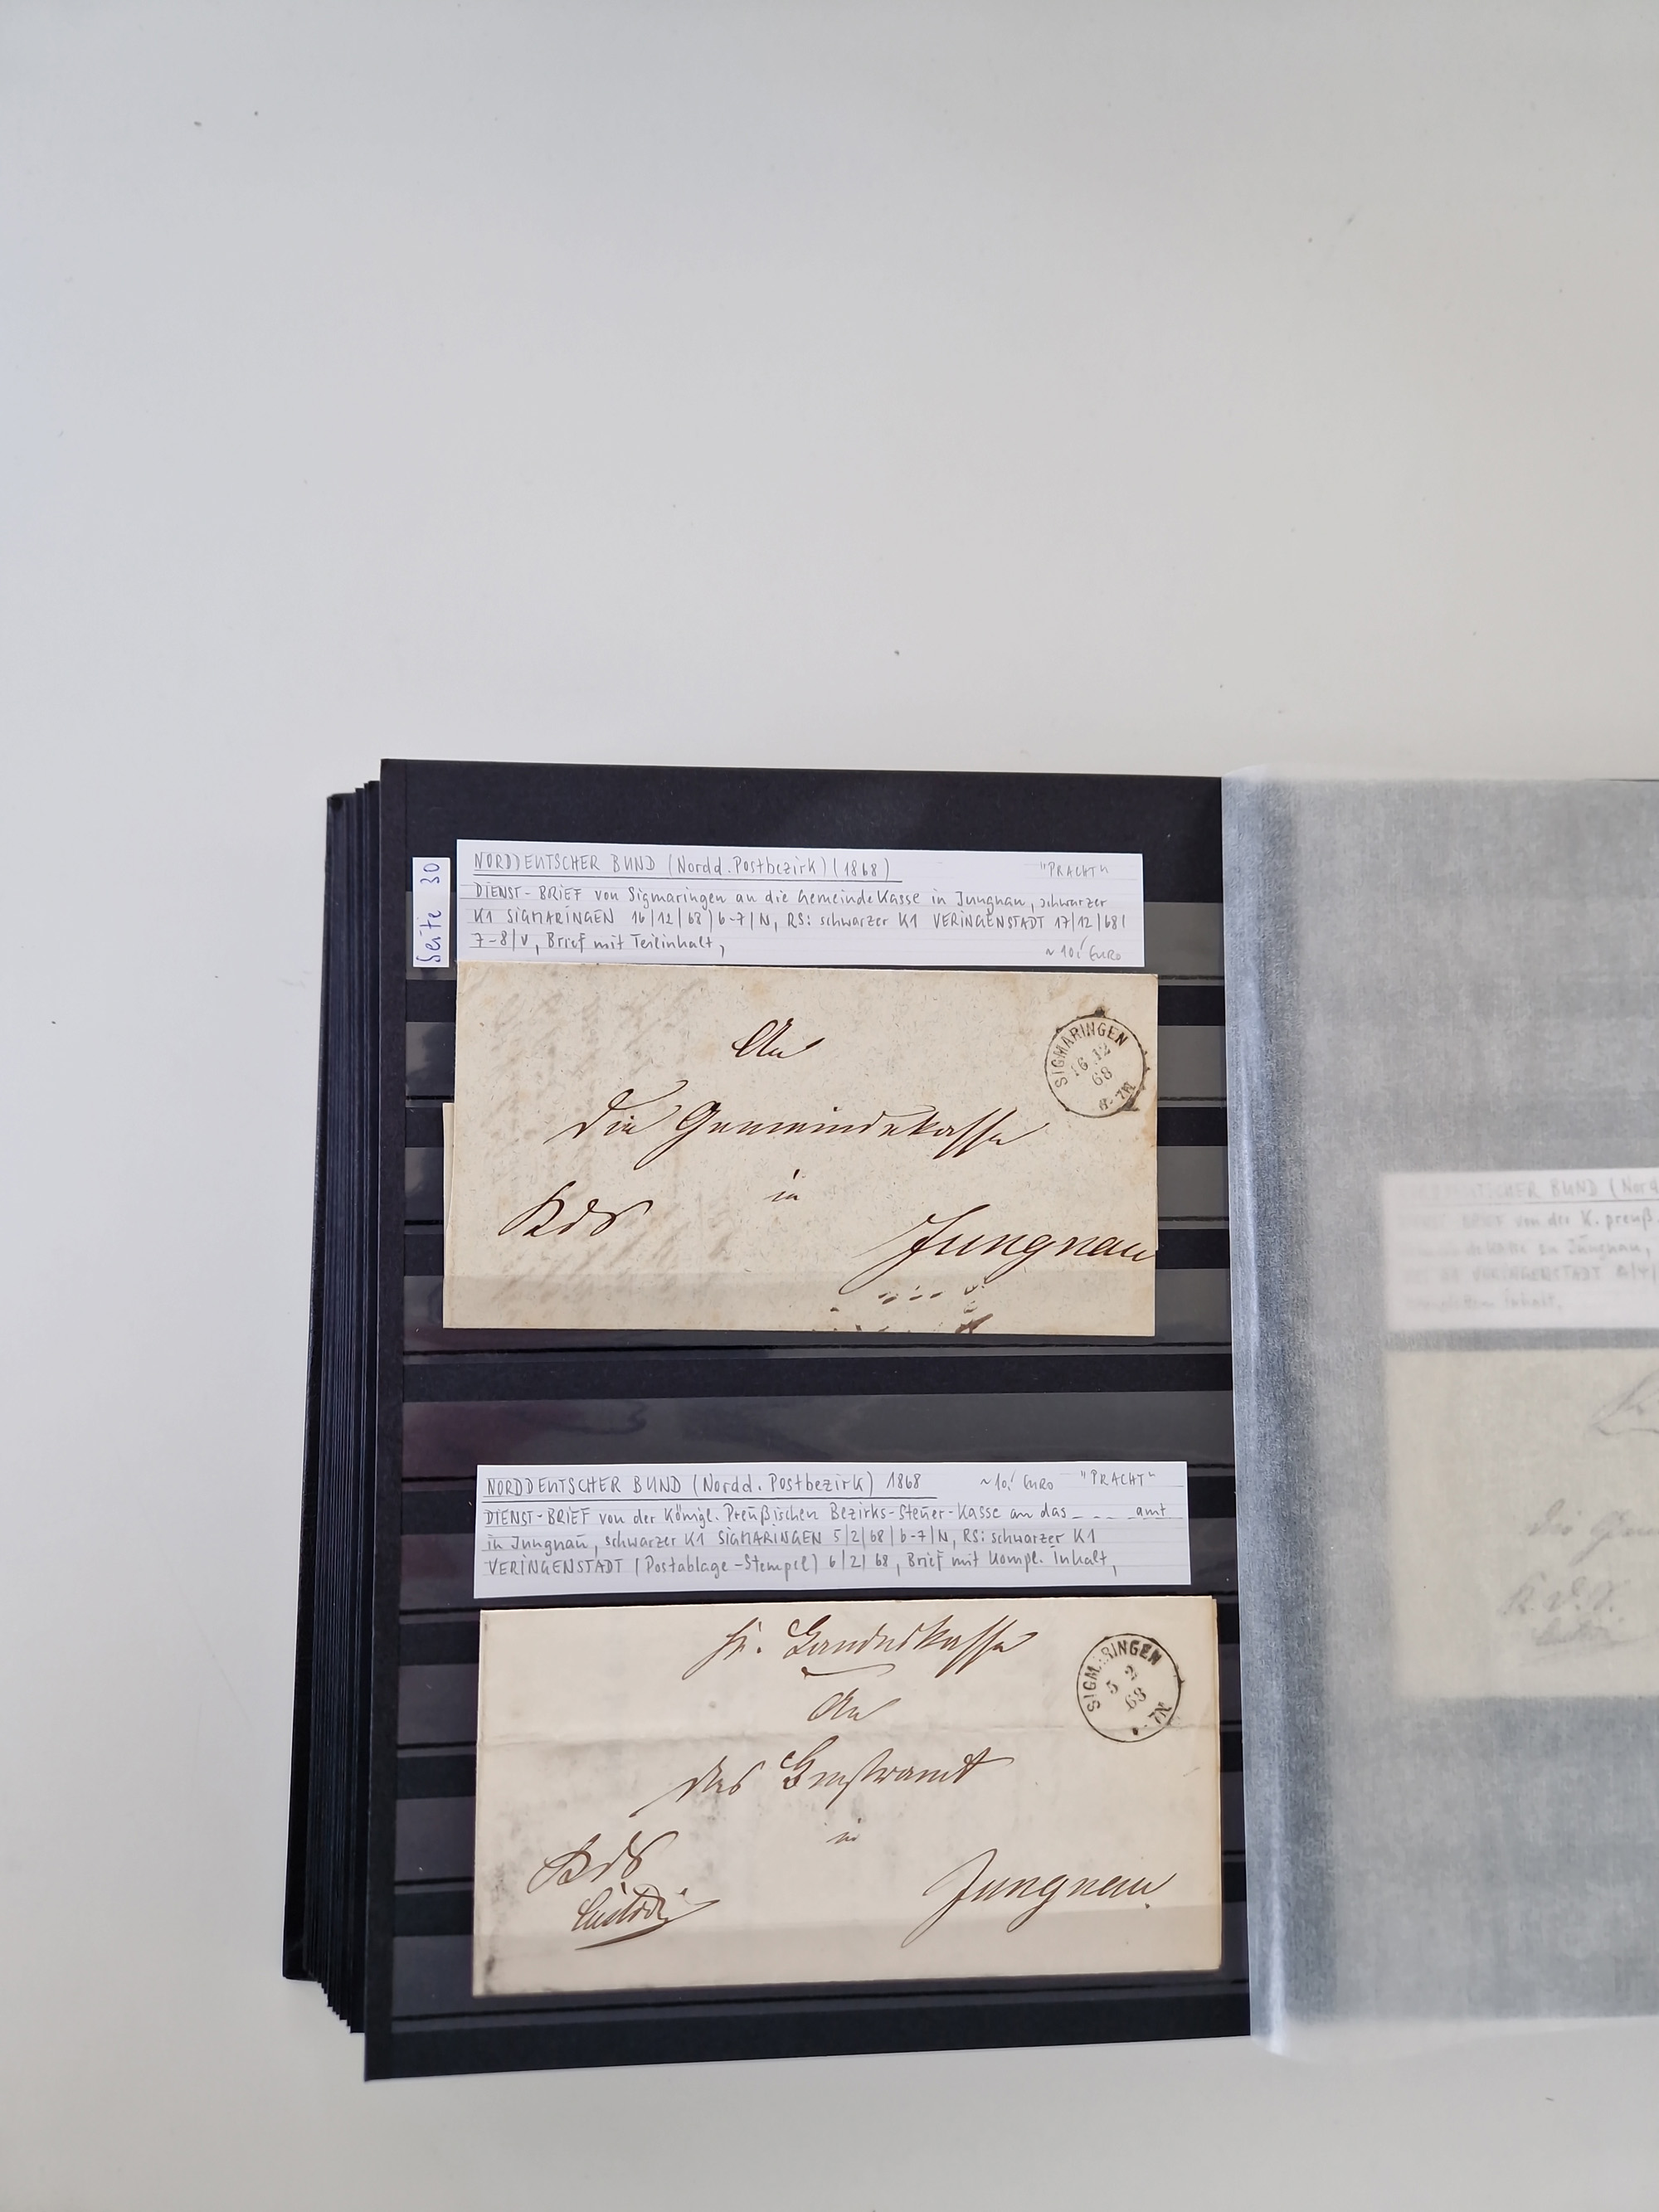 Seite 30
NORDDEUTSCHER BUND (Nordd. Postbezirk) (1868) "PRACHT"
DIENST-BRIEF von Sigmaringen an die Gemeinde Kasse in Jungnau, schwarzer
K1 SIGMARINGEN 16/12/68/6-7/N, RS: schwarzer K1 VERINGENSTADT 17/12/68/
7-8/V, Brief mit Teilinhalt,
~10,- EURO
SIGMARINGEN
16 12
68
6-7N
An
die Gemeindekasse
in
KdS
Jungnau
NORDDEUTSCHER BUND (Nordd. Postbezirk) 1868 ~10,- EURO "PRACHT"
DIENST-BRIEF von der Königl. Preußischen Bezirks-Steuer-Kasse an das _ . _ . _ amt
in Jungnau, schwarzer K1 SIGMARINGEN 5/2/68/6-7/N, RS: schwarzer K1
VERINGENSTADT (Postablage-Stempel) 6/2/68, Brief mit kompl. Inhalt,
SIGMARINGEN
5 2
68
7N
An
das
in
KdS
Jungnau.
BUND (Nord
BRIEF von der K. preuß.
zu Jungnau,
VERINGENSTADT
Inhalt,
die
K. d. S.